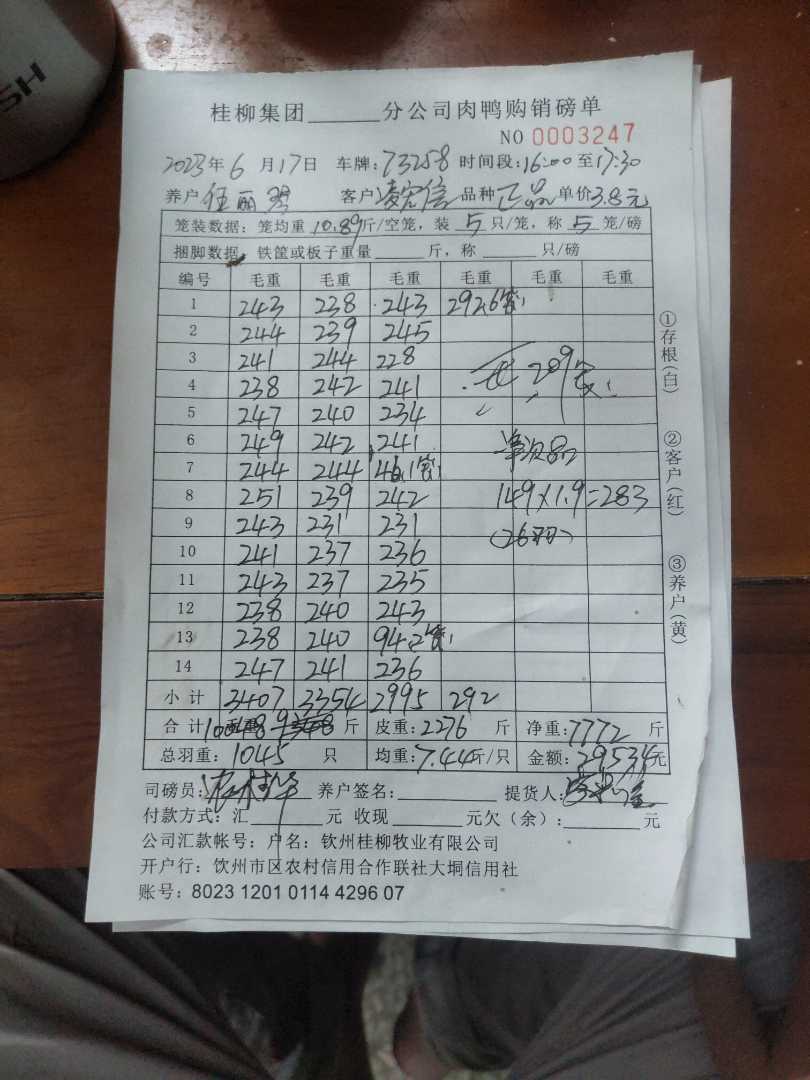 SH
桂柳集团______分公司肉鸭购销磅单
NO 0003247
2023年6月17日 车牌:73258 时间段:16:00至17:30
养户 任丽 客户 凌宏信 品种 正品 单价3.8元
笼装数据:笼均重10.89斤/空笼,装5只/笼,称5笼/磅
捆脚数据 铁筐或板子重量______斤,称______只/磅
编号 毛重 毛重 毛重 毛重 毛重 毛重
1 243 238 243 292.6
2 244 239 245
3 241 244 228
4 238 242 241 209
5 247 240 234
6 249 242 241 净次品
7 244 244 46.1
8 251 239 242 149×1.9=283
9 243 231 231 (26羽)
10 241 237 236
11 243 237 235
12 238 240 243
13 238 240 94.2
14 247 241 236
小计 3407 3354 2995 292
合计 10048 斤 皮重:2276 斤 净重:7772 斤
总羽重:1045 只 均重:7.44斤/只 金额:29534元
司磅员: 养户签名:______ 提货人:
付款方式:汇______元 收现______元欠(余):______元
公司汇款帐号:户名:钦州桂柳牧业有限公司
开户行:饮州市区农村信用合作联社大垌信用社
账号:8023 1201 0114 4296 07
①存根(白)
②客户(红)
③养户(黄)